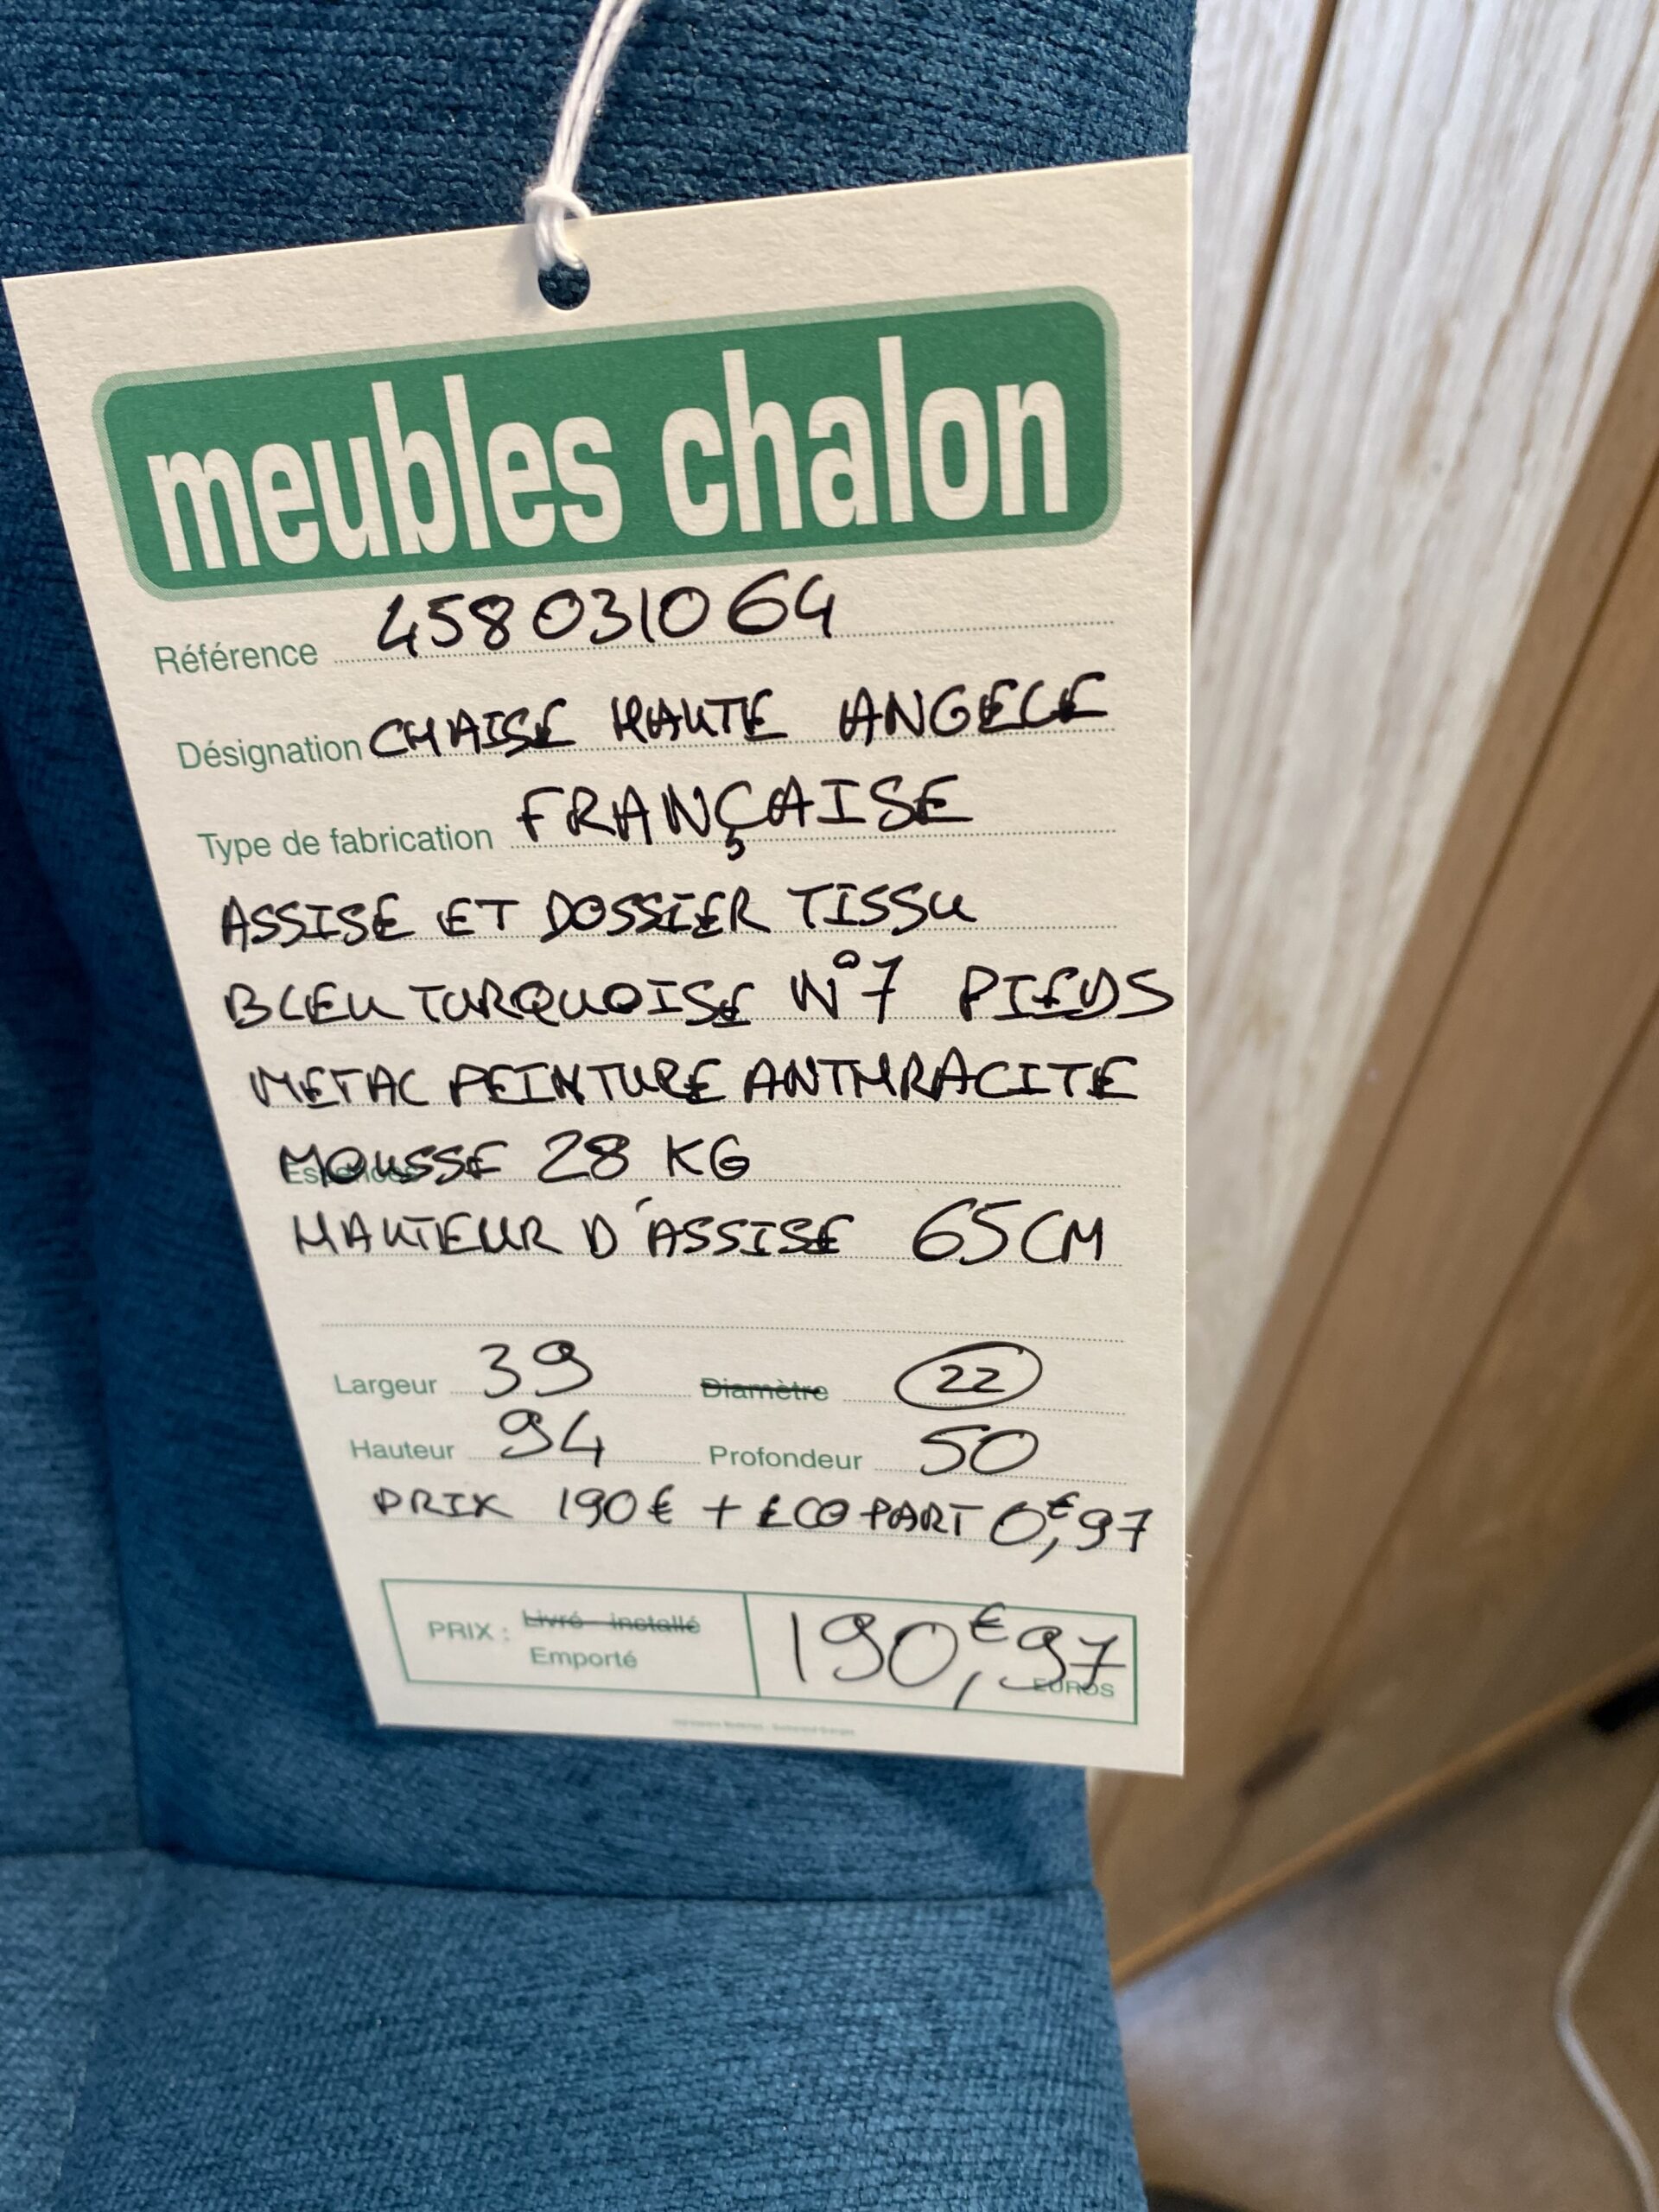 meubles chalon
Référence 458031064
Désignation CHAISE HAUTE ANGELE
Type de fabrication FRANÇAISE
ASSISE ET DOSSIER TISSU
BLEU TURQUOISE N°7 PIEDS
METAL PEINTURE ANTHRACITE
MOUSSE 28 KG
HAUTEUR D'ASSISE 65CM
Largeur 39 Diamètre 22
Hauteur 94 Profondeur 50
PRIX 190€ + ECO PART 0€,97
PRIX : Livré - installé
Emporté
190€,97
EUROS